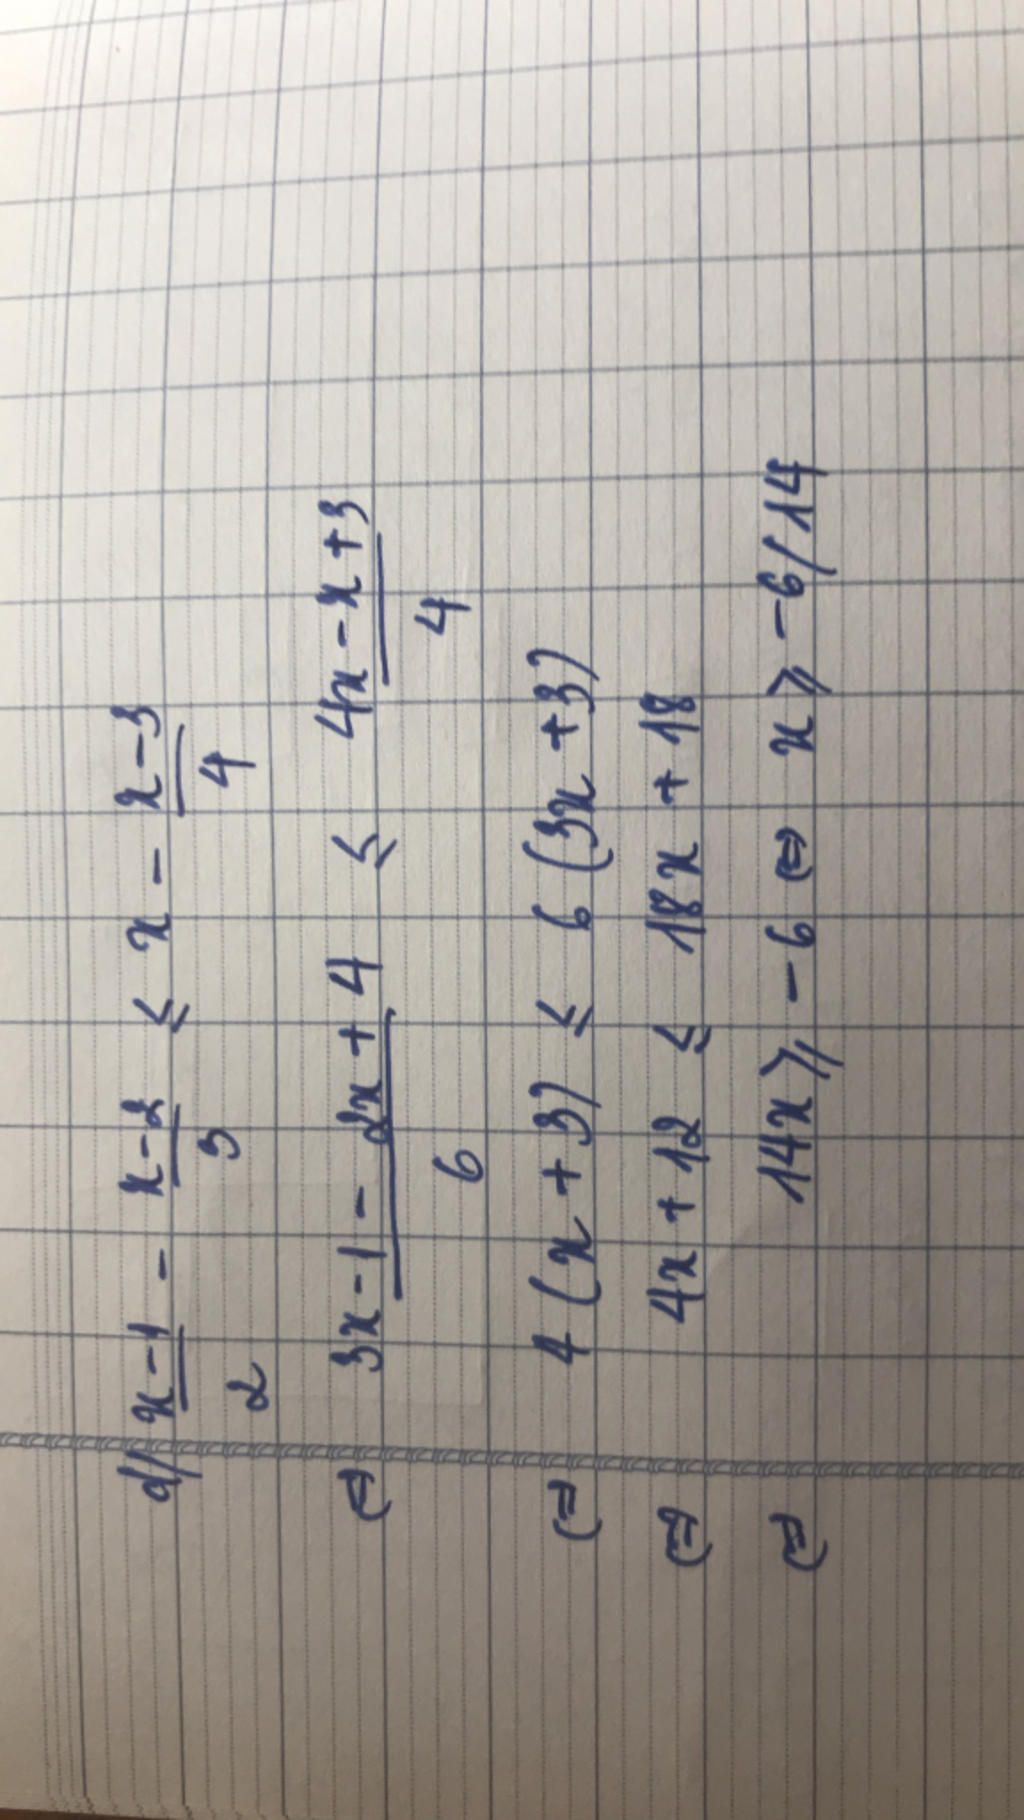 d/ x-1/2 - x-2/3 ≤ x - x-3/4
⇔ 3x-1-2x+4/6 ≤ 4x-x+3/4
⇔ 4(x+3) ≤ 6(3x+3)
⇔ 4x+12 ≤ 18x+18
⇔ 14x ⩾ -6 ⇔ x ⩾ -6/14